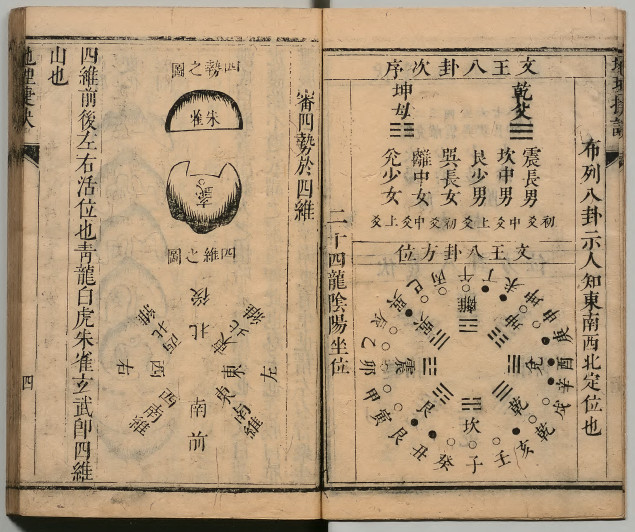 布列八卦示人知東南西北定位也
文王八卦次序
乾父
坤母
震長男
坎中男
艮少男
巽長女
離中女
兌少女
初爻
中爻
上爻
初爻
中爻
上爻
文王八卦方位
午
丁
未
坤
申
庚
酉
辛
戌
乾
亥
壬
子
癸
丑
艮
寅
甲
卯
乙
辰
巽
巳
丙
離
坤
兌
乾
坎
艮
震
巽
二十四龍陰陽坐位
審四維於四維
四勢之圖
朱雀
四維之圖
後
北
東北維
西北維
左
東
西
右
東南維
西南維
南
前
四維前後左右活位也青龍白虎朱雀玄武即四維
山也
四